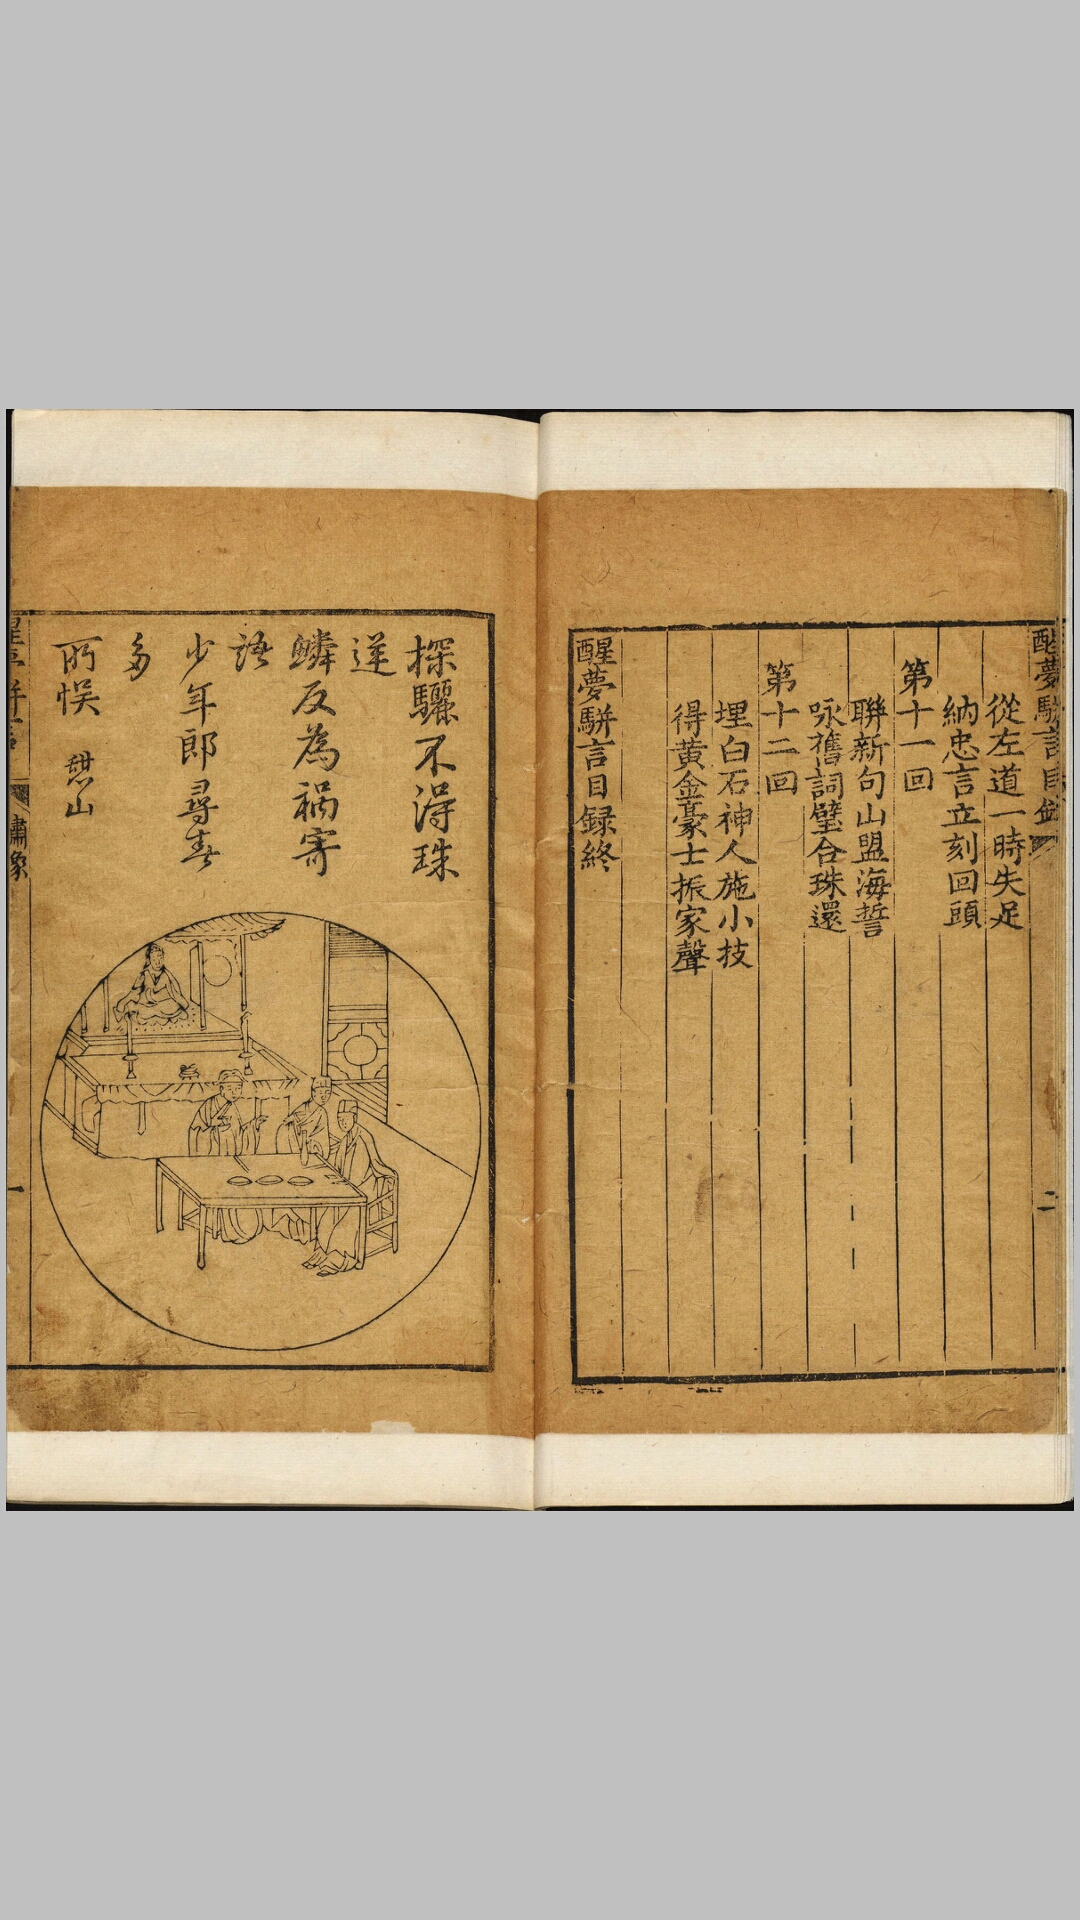 醒夢駢言目錄
二
從左道一時失足
納忠言立刻回頭
第十一回
聯新句山盟海誓
咏舊詞璧合珠還
第十二回
埋白石神人施小技
得黃金豪士振家聲
醒夢駢言目録終
探驪不淂珠
逆
鱗反為禍寄
語
少年郎尋春
多
所悞 憇山
繡像
一